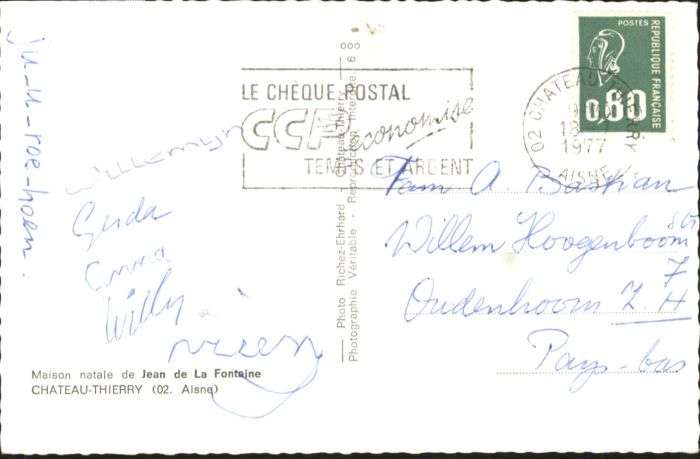 ju-u-roe-hoen.
Willemijn
Gerda
Emma
Willy
Maison natale de Jean de La Fontaine
CHATEAU-THIERRY (02. Aisne)
Photo Richez-Ehrhard - Chateau-Thierry
Photographie Véritable - Reproduction Interdite. 6 000
LE CHÈQUE POSTAL
CCP économise
TEMPS ET ARGENT
02 CHATEAU-THIERRY
18
1977
AISNE
POSTES
REPUBLIQUE FRANÇAISE
0,80
Fam A. Bastiaan
Willem Hoogenboom
7
Oudenhoorn Z.H
Pays-bas